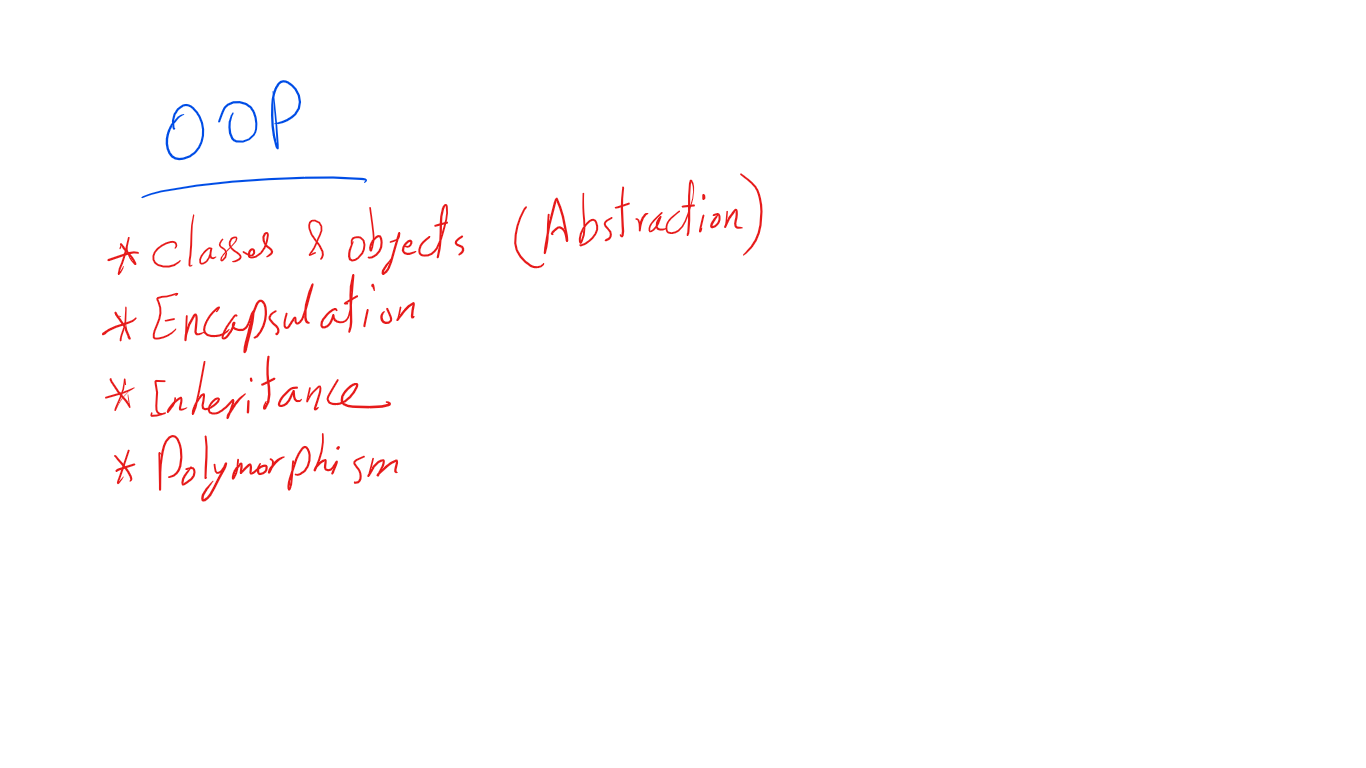 OOP
* classes & objects (Abstraction)
* Encapsulation
* Inheritance
* Polymorphism